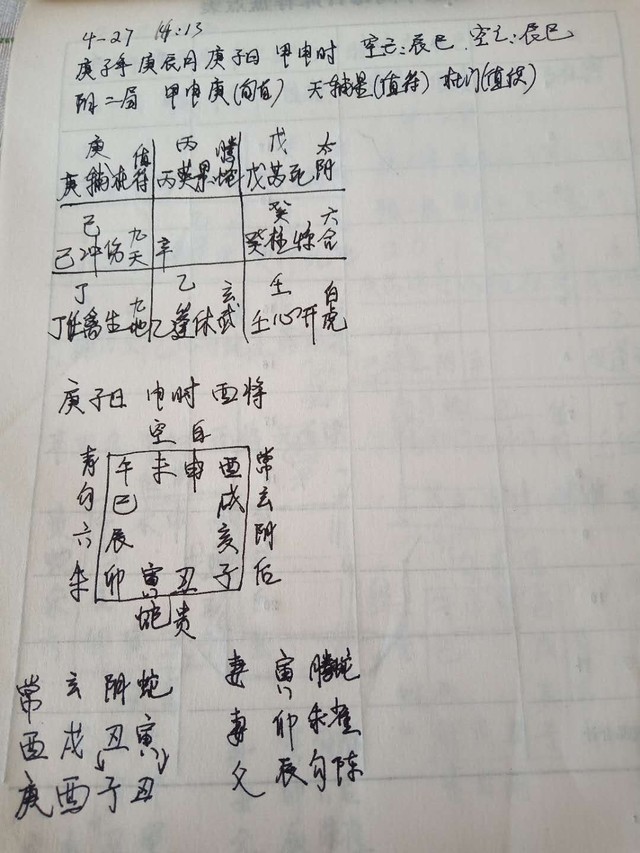 4-27 14:13
庚子年 庚辰月 庚子日 甲申时 空亡:辰巳 空亡:辰巳
阳二局 甲申庚(旬首) 天辅星(值符) 杜门(值使)
庚 值 丙 腾 戊 太
庚辅杜符 丙英景蛇 戊芮死阴
己 九 癸 六
己冲伤天 辛 癸柱惊合
丁 九 乙 玄 壬 白
丁任离生地 乙蓬休武 壬心开虎
庚子日 申时 酉将
空 白
青 午 未 申 酉 常
勾 巳 戌 玄
六 辰 亥 阴
朱 卯 寅 丑 子 后
蛇 贵
常 玄 阴 蛇
酉 戌 丑 寅
庚 酉 子 丑
妻 寅 腾蛇
妻 卯 朱雀
父 辰 勾陈